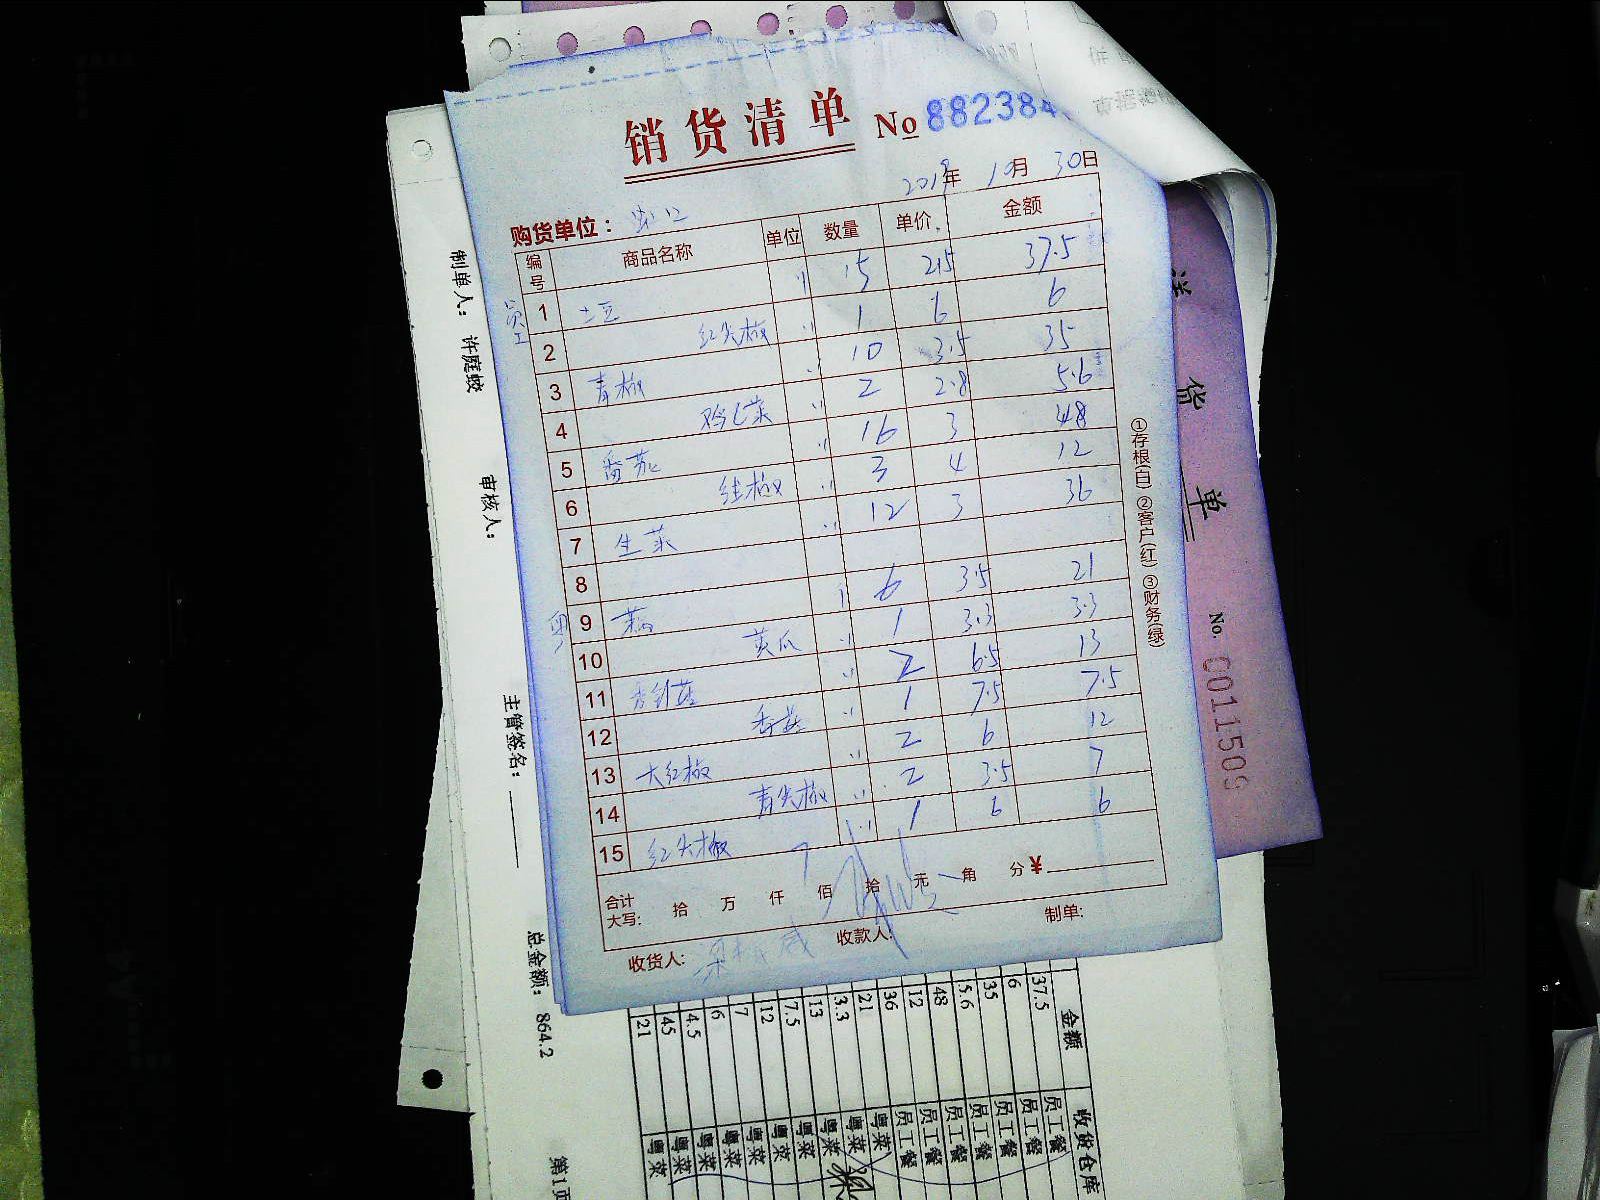 销货清单 No 882384
2019年 10月 30日
购货单位: 蛇口
编号 商品名称 单位 数量 单价 金额
员工
1 土豆 〃 15 2.5 37.5
2 红尖椒 〃 1 6 6
3 青椒 〃 10 3.5 35
4 鸡毛菜 〃 2 2.8 5.6
5 番茄 〃 16 3 48
6 线椒 〃 3 4 12
7 生菜 〃 12 3 36
8
粤
9 莲藕 〃 6 3.5 21
10 黄瓜 〃 1 3.3 3.3
11 〃 2 6.5 13
12 香菇 〃 1 7.5 7.5
13 大红椒 〃 2 6 12
14 青尖椒 〃 2 3.5 7
15 红尖椒 〃 1 6 6
合计大写: 拾 万 仟 佰 拾 元 角 分 ¥
收货人: 收款人: 制单:
①存根(白) ②客户(红) ③财务(绿)
送货单
No. C011509
制单人: 许庭蛟
审核人:
主管签名:
总金额: 864.2
第1页
金额 收货仓库
37.5 员工餐
6 员工餐
35 员工餐
5.6 员工餐
48 员工餐
12 员工餐
36 员工餐
21 粤菜
3.3 粤菜
13 粤菜
7.5 粤菜
12 粤菜
7 粤菜
6 粤菜
4.5 粤菜
45 粤菜
21 粤菜